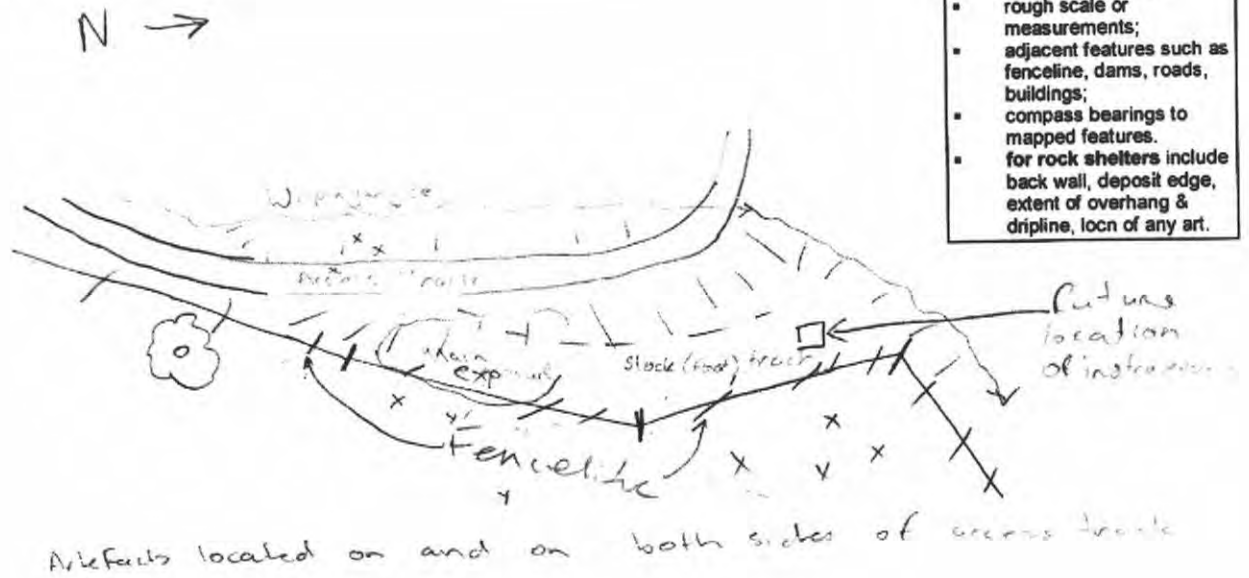 N
rough scale or
measurements;
▪ adjacent features such as
fenceline, dams, roads,
buildings;
▪ compass bearings to
mapped features.
▪ for rock shelters include
back wall, deposit edge,
extent of overhang &
dripline, locn of any art.
Access Track
Main
Stock (foot) track
Future
location
of
Fenceline
Artefacts located on and on both sides of access track